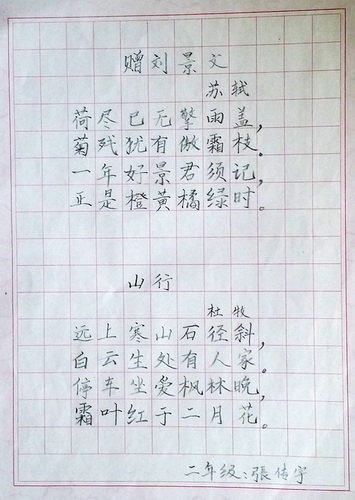 赠刘景文
苏轼
荷尽已无擎雨盖,
菊残犹有傲霜枝。
一年好景君须记,
正是橙黄橘绿时。
山行
杜牧
远上寒山石径斜,
白云生处有人家。
停车坐爱枫林晚,
霜叶红于二月花。
二年级:張传宇